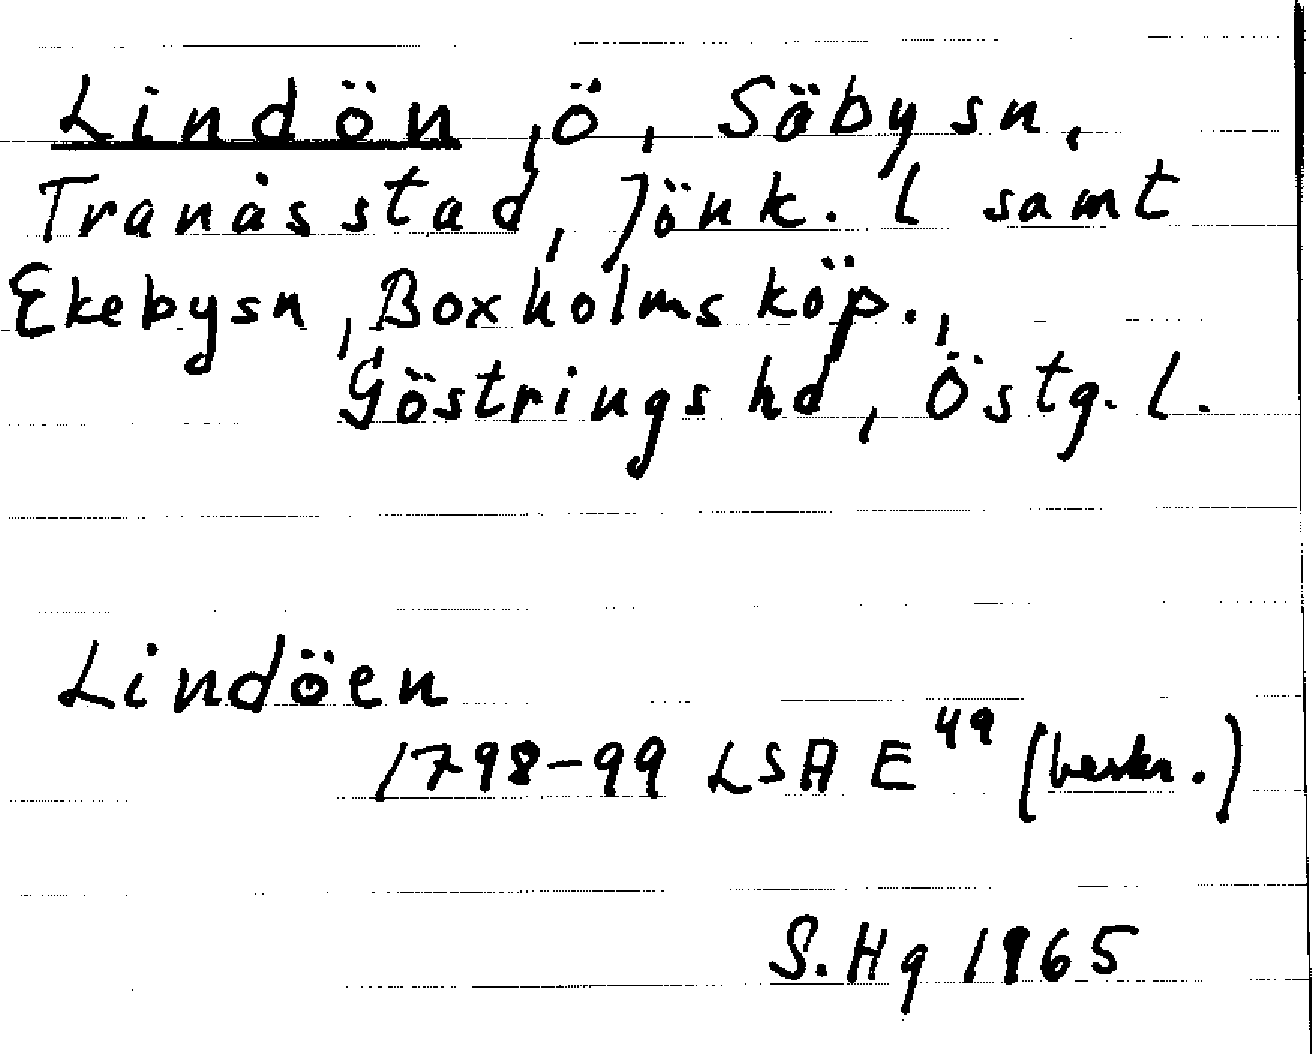 Lindön, ö, Säby sn,
Tranås stad, Jönk. l samt
Ekeby sn, Boxholms köp.,
Göstrings hd, Östg. l.
Lindöen
1798-99 LSA E 49 (beskr.)
S. Hg 1965